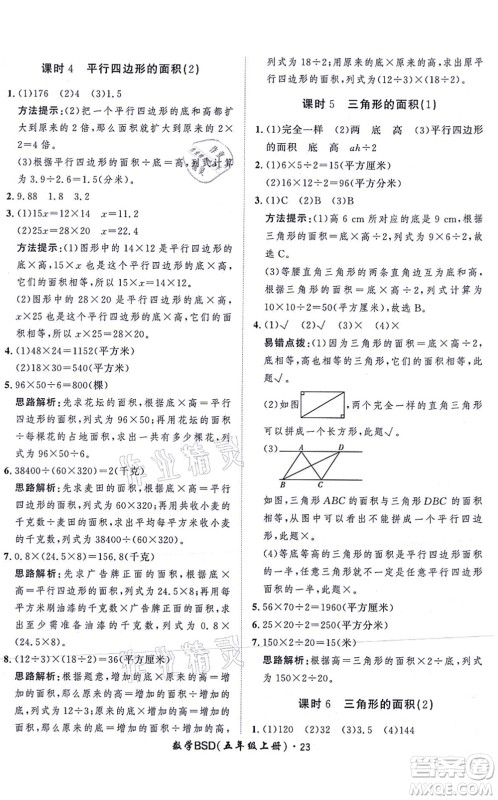 课时4 平行四边形的面积(2)
1.(1)176 (2)4 (3)1.5
方法提示:(2)把一个平行四边形的底和高都扩
大到原来的2倍,面积扩大到原来的2×
2=4倍。
(3)根据平行四边形的面积÷底=高,列式计算
为3.9÷2.6=1.5(分米)。
2.9.88 1.8 3.2
3.(1)15x=12×14 x=11.2
(2)25x=28×20 x=22.4
方法提示:(1)图形中的14×12是平行四边形的
底×高,15×x也是这个平行四边形的底×高,它
们的面积相等,所以15x=14×12。
(2)图形中的28×20是平行四边形的底×高,
25×x也是这个平行四边形的底×高,它们的面
积相等,所以25x=28×20。
4.(1)48×24=1152(平方米)
(2)18×30=540(平方米)
5.96×50÷6=800(棵)
思路解析:先求花坛的面积,根据底×高=平行
四边形的面积,列式为96×50;再用花坛的面积
÷每棵花的占地面积=花的棵数,列式为
96×50÷6。
6.38400÷(60×320)=2(千克)
思路解析:先求麦田的面积,根据底×高=平行
四边形的面积,列式为60×320;再用收小麦的
千克数÷面积=平均每平方米收小麦的千克数,
列式为38400÷(60×320)。
7.0.8×(24.5×8)=156.8(千克)
思路解析:先求广告牌正面的面积,根据底×高
=平行四边形的面积,列式为24.5×8;再用每平
方米刷油漆的千克数×广告牌正面的面积=至
少需要准备油漆的千克数,列式为0.8×
(24.5×8)。
8.(12÷3)×(18÷2)=36(平方厘米)
思路解析:根据题意,增加的底×原来的高=增
加的面积,原来的底×增加的高=增加的面积,
那么增加的面积÷增加的底=原来的高,增加的
面积÷增加的高=原来的底。原来的高列式为
列式为(18÷2);根据底×高=平行四边形的面
积,列式为(18÷2)×(12÷3)。
课时5 三角形的面积(1)
1.(1)完全一样 (2)两 底 高 (3)平行四边形
的面积 底 高 ah÷2
2.(1)6×5÷2=15(平方厘米)
(2)16×12÷2=96(平方厘米)
3.(1)C (2)B (3)B
方法提示:(1)高6 cm所对应的底是9 cm,根据
三角形的面积=底×高÷2,列式为9×6÷2,故
选C。
(3)等腰直角三角形的直角边互为底和高,根据
三角形的面积=底×高÷2,列式计算为
10×10÷2=50(平方厘米),故选B。
4.(1)√ (2)√ (3)√ (4)×
易错点拨:(1)根据三角形的面积=底×高÷2,
底相等,高也相等,那么它们的面积一定相等。
(2)如图 ,完全一样的直角三角形
可以拼成一个长方形。
(3)
A D
B C
如图,三角形ABC的面积与三角形DBC的面积
相等,但形状不同,不一定能拼成一个平行四
边形。
(4)等底等高的三角形的面积是平行四边形面积
的一半,任意三角形的面积不一定是任意平行四
边形面积的一半。
5.56×70÷2=1960(平方厘米)
6.25×20÷2=250(平方分米)
7.150×2÷20=15(厘米)
思路解析:根据三角形的面积=底×高÷2,那么
三角形的面积×2÷底=三角形的高,列式为
150×2÷20。
课时6 三角形的面积(2)
1.(1)120 (2)32 (3)3.5 (4)144
数学BSD(五年级上册)·23
作业精灵
作业精灵